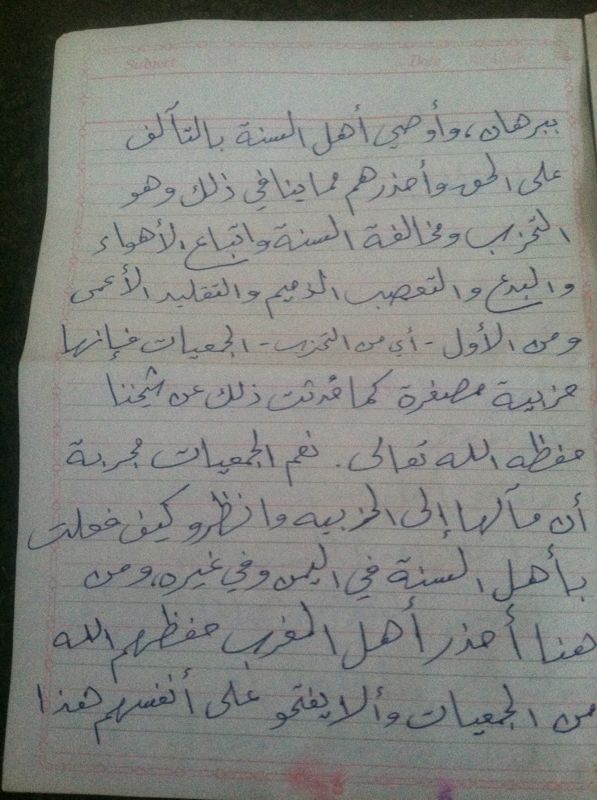 Subject
Date
ببرهان، وأوصي أهل السنة بالتآلف
على الحق وأحذرهم مما ينافي ذلك وهو
التحزب ومخالفة السنة واتباع الأهواء
والبدع والتعصب الذميم والتقليد الأعمى
ومن الأول - أي من التحزب - الجمعيات فإنها
حزبية مصغرة كما حُدثت ذلك عن شيخنا
حفظه الله تعالى. نعم الجمعيات مجربة
أن مآلها إلى الحزبيه وانظرو كيف فعلت
بأهل السنة في اليمن وفي غيره، ومن
هنا أحذر أهل المغرب حفظهم الله
من الجمعيات وألا يفتحو على أنفسهم هذا